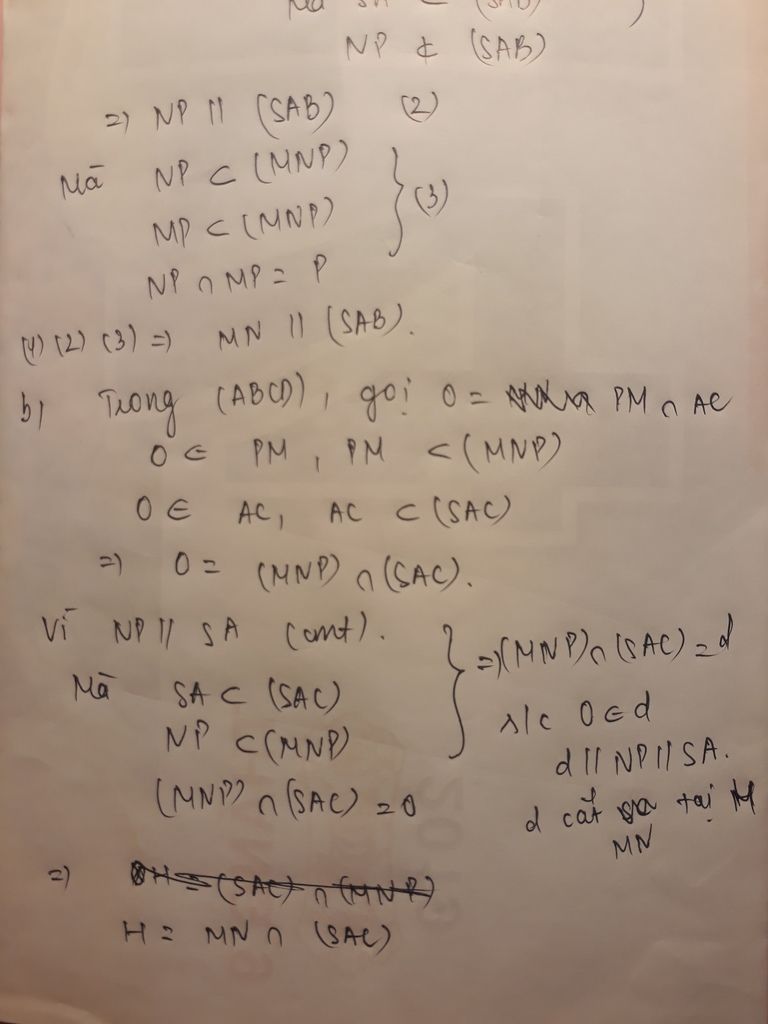 Mà SA ⊂ (SAB)
NP ⊄ (SAB)
=) NP // (SAB) (2)
Mà NP ⊂ (MNP)
MP ⊂ (MNP) } (3)
NP ∩ MP = P
(1) (2) (3) =) MN // (SAB).
b) Trong (ABCD), gọi O = PM ∩ AC
O ∈ PM, PM ⊂ (MNP)
O ∈ AC, AC ⊂ (SAC)
=) O = (MNP) ∩ (SAC).
Vì NP // SA (cmt).
Mà SA ⊂ (SAC)
NP ⊂ (MNP)
(MNP) ∩ (SAC) = O
} =) (MNP) ∩ (SAC) = d
s/c O ∈ d
d // NP // SA.
d cắt tại H
MN
=) OH = (SAC) ∩ (MNP)
H = MN ∩ (SAC)